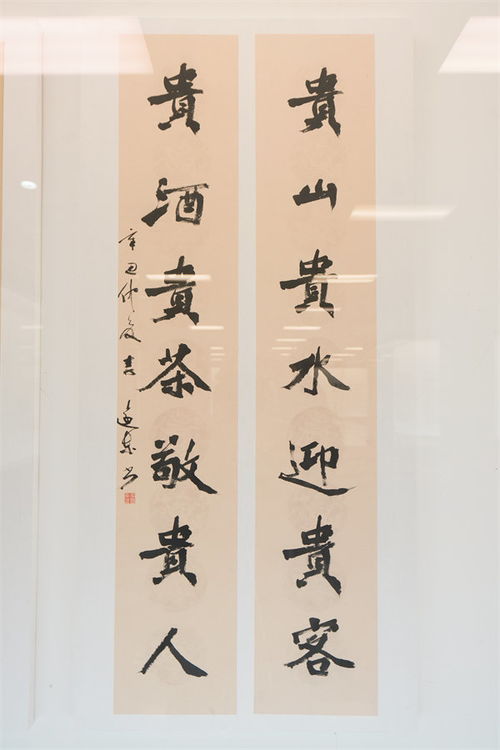 貴山貴水迎貴客
貴酒貴茶敬貴人
辛丑仲夏吉